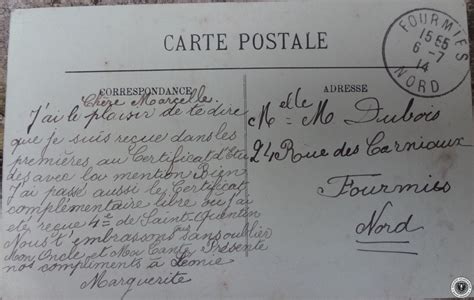 CARTE POSTALE
CORRESPONDANCE
Chère Marcelle.
J'ai le plaisir de te dire
que je suis reçue dans les
premières au Certificat d'Etu
des avec la mention Bien
J'ai passé aussi le Certificat
complémentaire libre ou j'ai
été reçue 4e de Saint-Quentin
Nous t'embrassons sans oublier
Mon Oncle et Ma Tante Présente
nos compliments à Léonie
Marguerite
ADRESSE
Melle M Dubois
24 Rue des Carniaux
Fourmies
Nord
FOURMIES
15 55
6 - 7
14
NORD